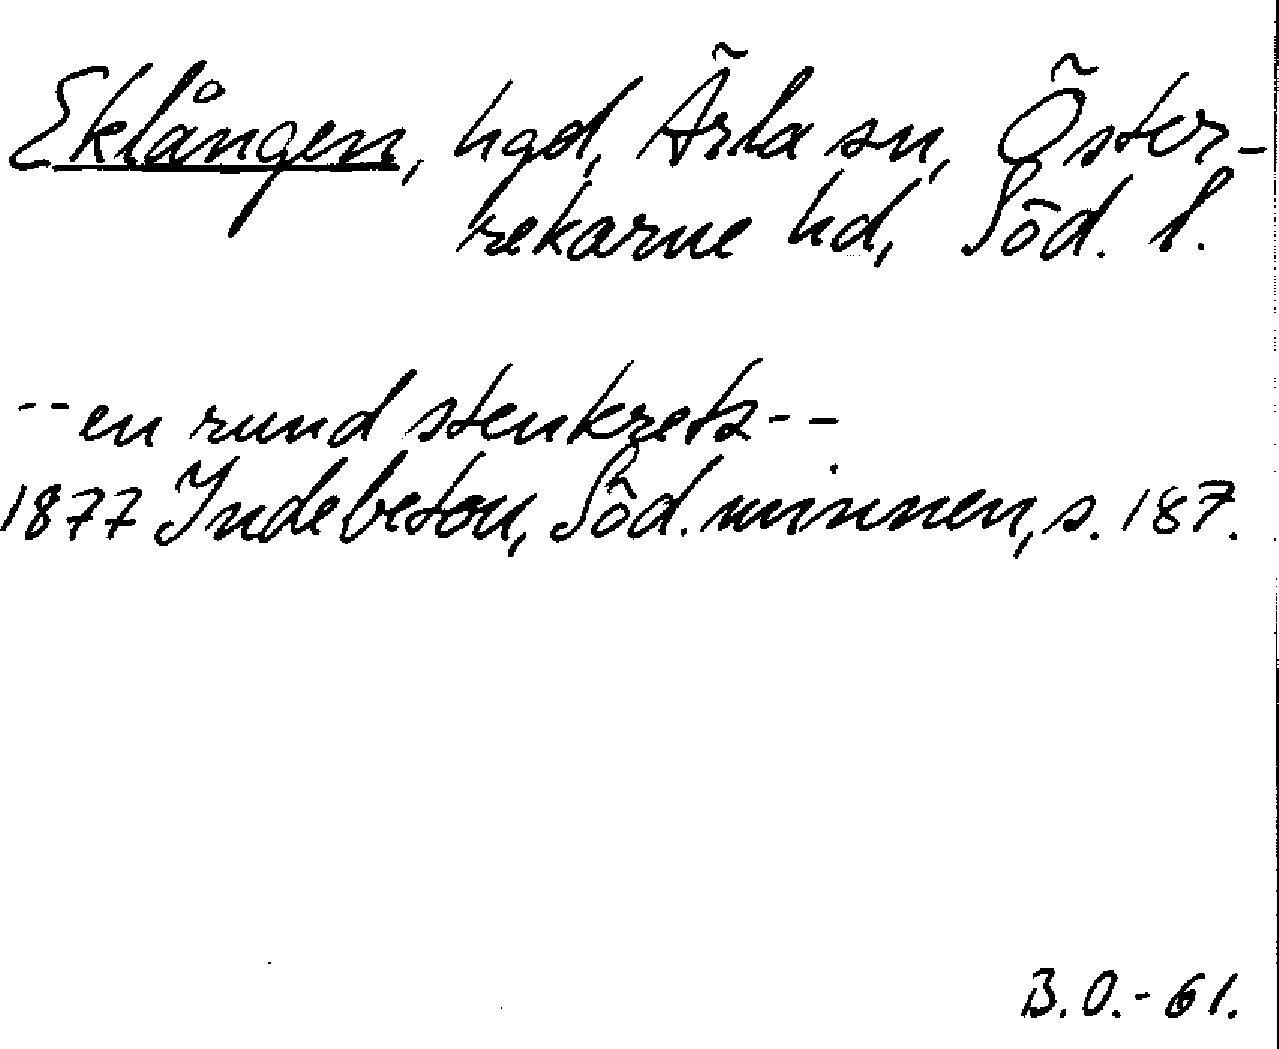 Eklången, hgd, Ärla sn, Öster-
rekarne hd, Söd. l.
-- en rund stenkrets --
1877 Indebetou, Söd. minnen, s. 187.
B.O.-61.